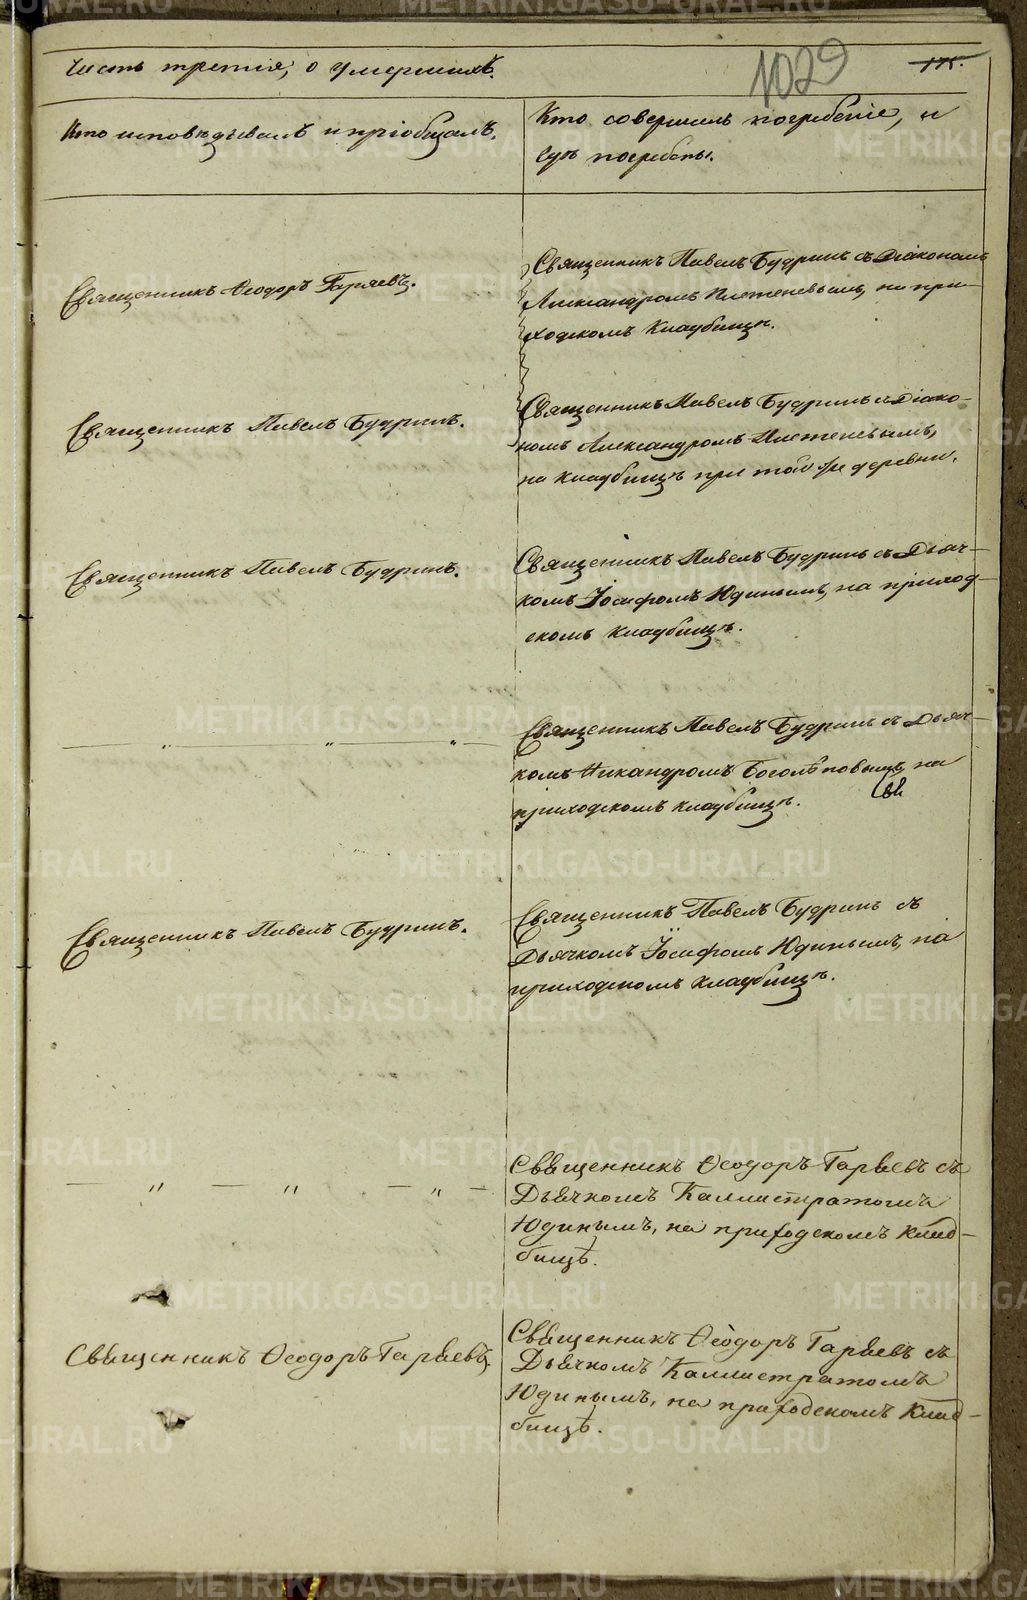 Часть третія, о умершихъ.
1029
175.
Кто исповѣдывалъ и пріобщалъ.
Кто совершалъ погребеніе, и
гдѣ погребены.
Священникъ Ѳеодоръ Гаряевъ.
Священникъ Павелъ Будринъ съ Діакономъ
Александромъ Плетеневымъ, на при-
ходскомъ кладбищѣ.
Священникъ Павелъ Будринъ.
Священникъ Павелъ Будринъ съ Діако-
номъ Александромъ Плетеневымъ,
на кладбищѣ при той же деревни.
Священникъ Павелъ Будринъ.
Священникъ Павелъ Будринъ съ Дьяч-
комъ Іосифомъ Юдинымъ, на приход-
скомъ кладбищѣ.
— „ „ — „ —
Священникъ Павелъ Будринъ съ Дьяч-
комъ Никандромъ Боголѣповымъ, на
приходскомъ кладбищѣ.
Священникъ Павелъ Будринъ.
Священникъ Павелъ Будринъ съ
Дьячкомъ Іосифомъ Юдинымъ, на
приходскомъ кладбищѣ.
— „ — „ — „ —
Священникъ Ѳеодоръ Гаряевъ съ
Дьячкомъ Каллистратомъ
Юдинымъ, на приходскомъ клад-
бищѣ.
Священникъ Ѳеодоръ Гаряевъ
Священникъ Ѳеодоръ Гаряевъ съ
Дьячкомъ Каллистратомъ
Юдинымъ, на приходскомъ клад-
бищѣ.
METRIKI.GASO-URAL.RU